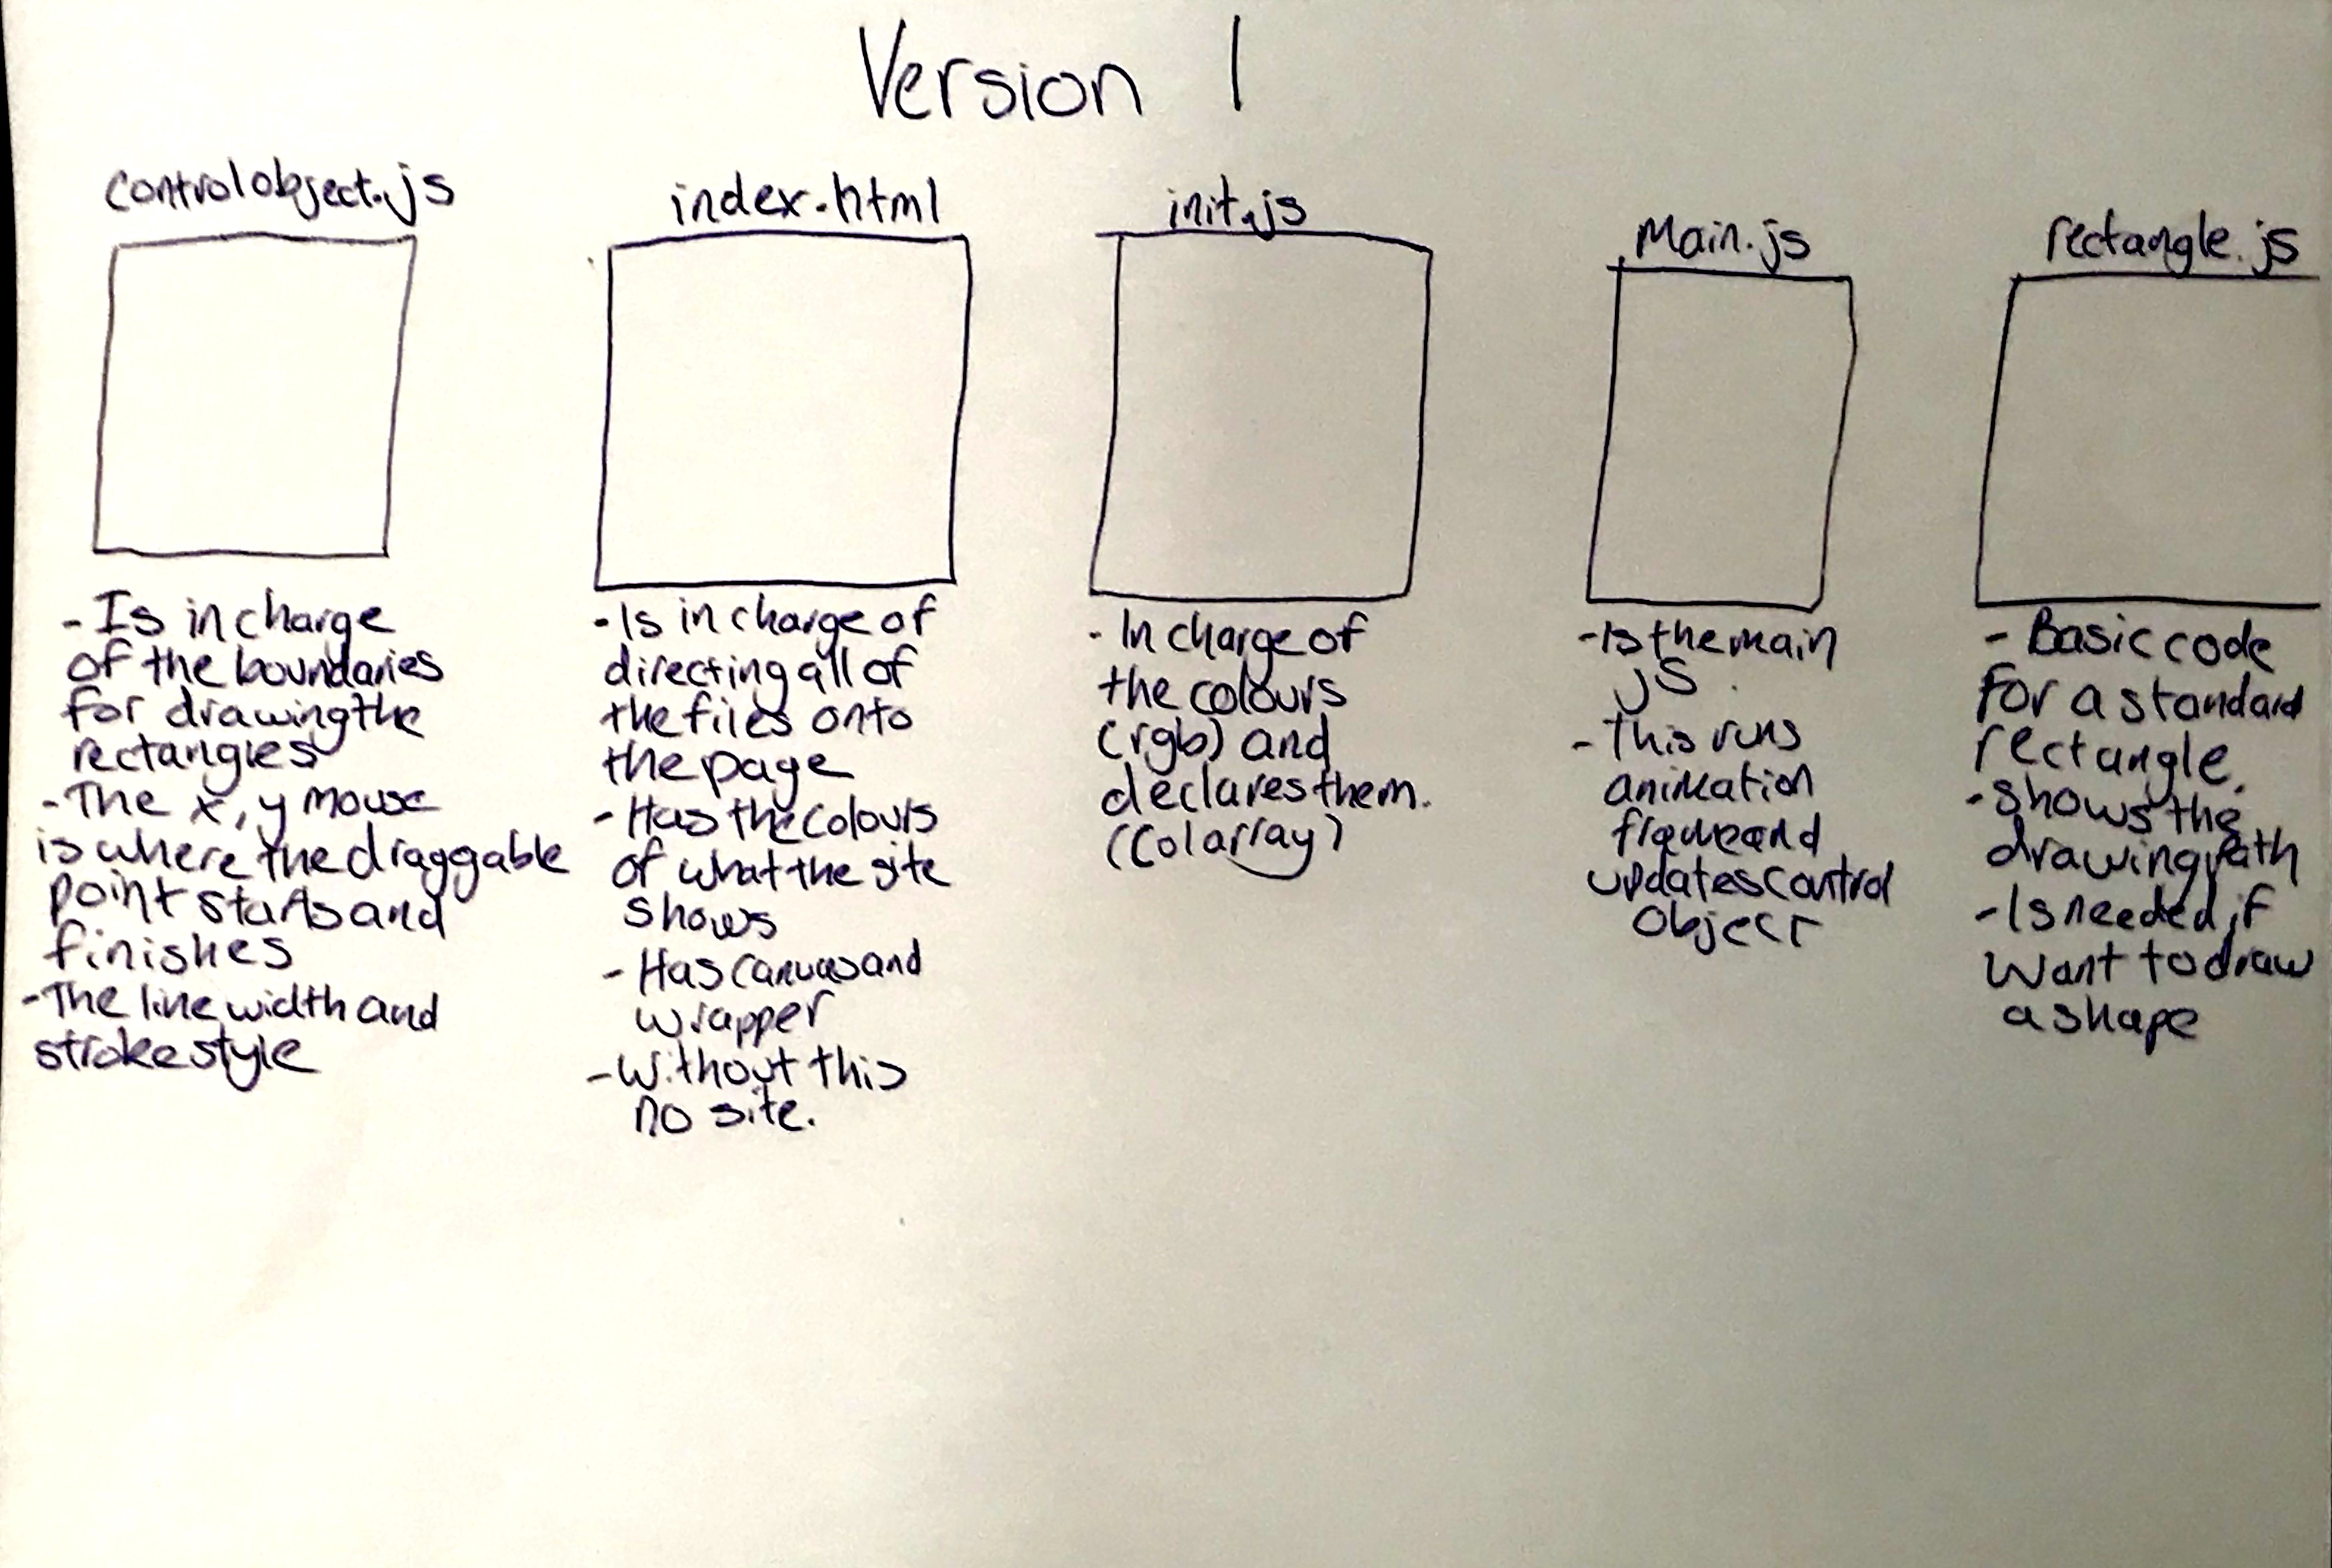 Version 1
controlobject.js
- Is in charge
of the boundaries
for drawing the
rectangles
- The x, y mouse
is where the draggable
point starts and
finishes
- The line width and
stroke style
index.html
- Is in charge of
directing all of
the files onto
the page
- Has the colours
of what the site
shows
- Has canvas and
wrapper
- Without this
no site.
init.js
- In charge of
the colours
(rgb) and
declares them.
(Colarray)
Main.js
- Is the main
JS.
- This runs
animation
frame and
updates control
Object
rectangle.js
- Basic code
for a standard
rectangle.
- shows the
drawing path
- Is needed if
want to draw
a shape